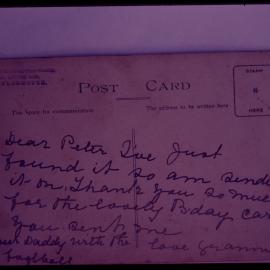 POST CARD
The Space for communication
The address to be written here
STAMP
HERE
Dear Peter I've Just
found it so am sending
it on, Thank you so much
for the lovely Bday card
You sent me
Daddy with the love Granny
football